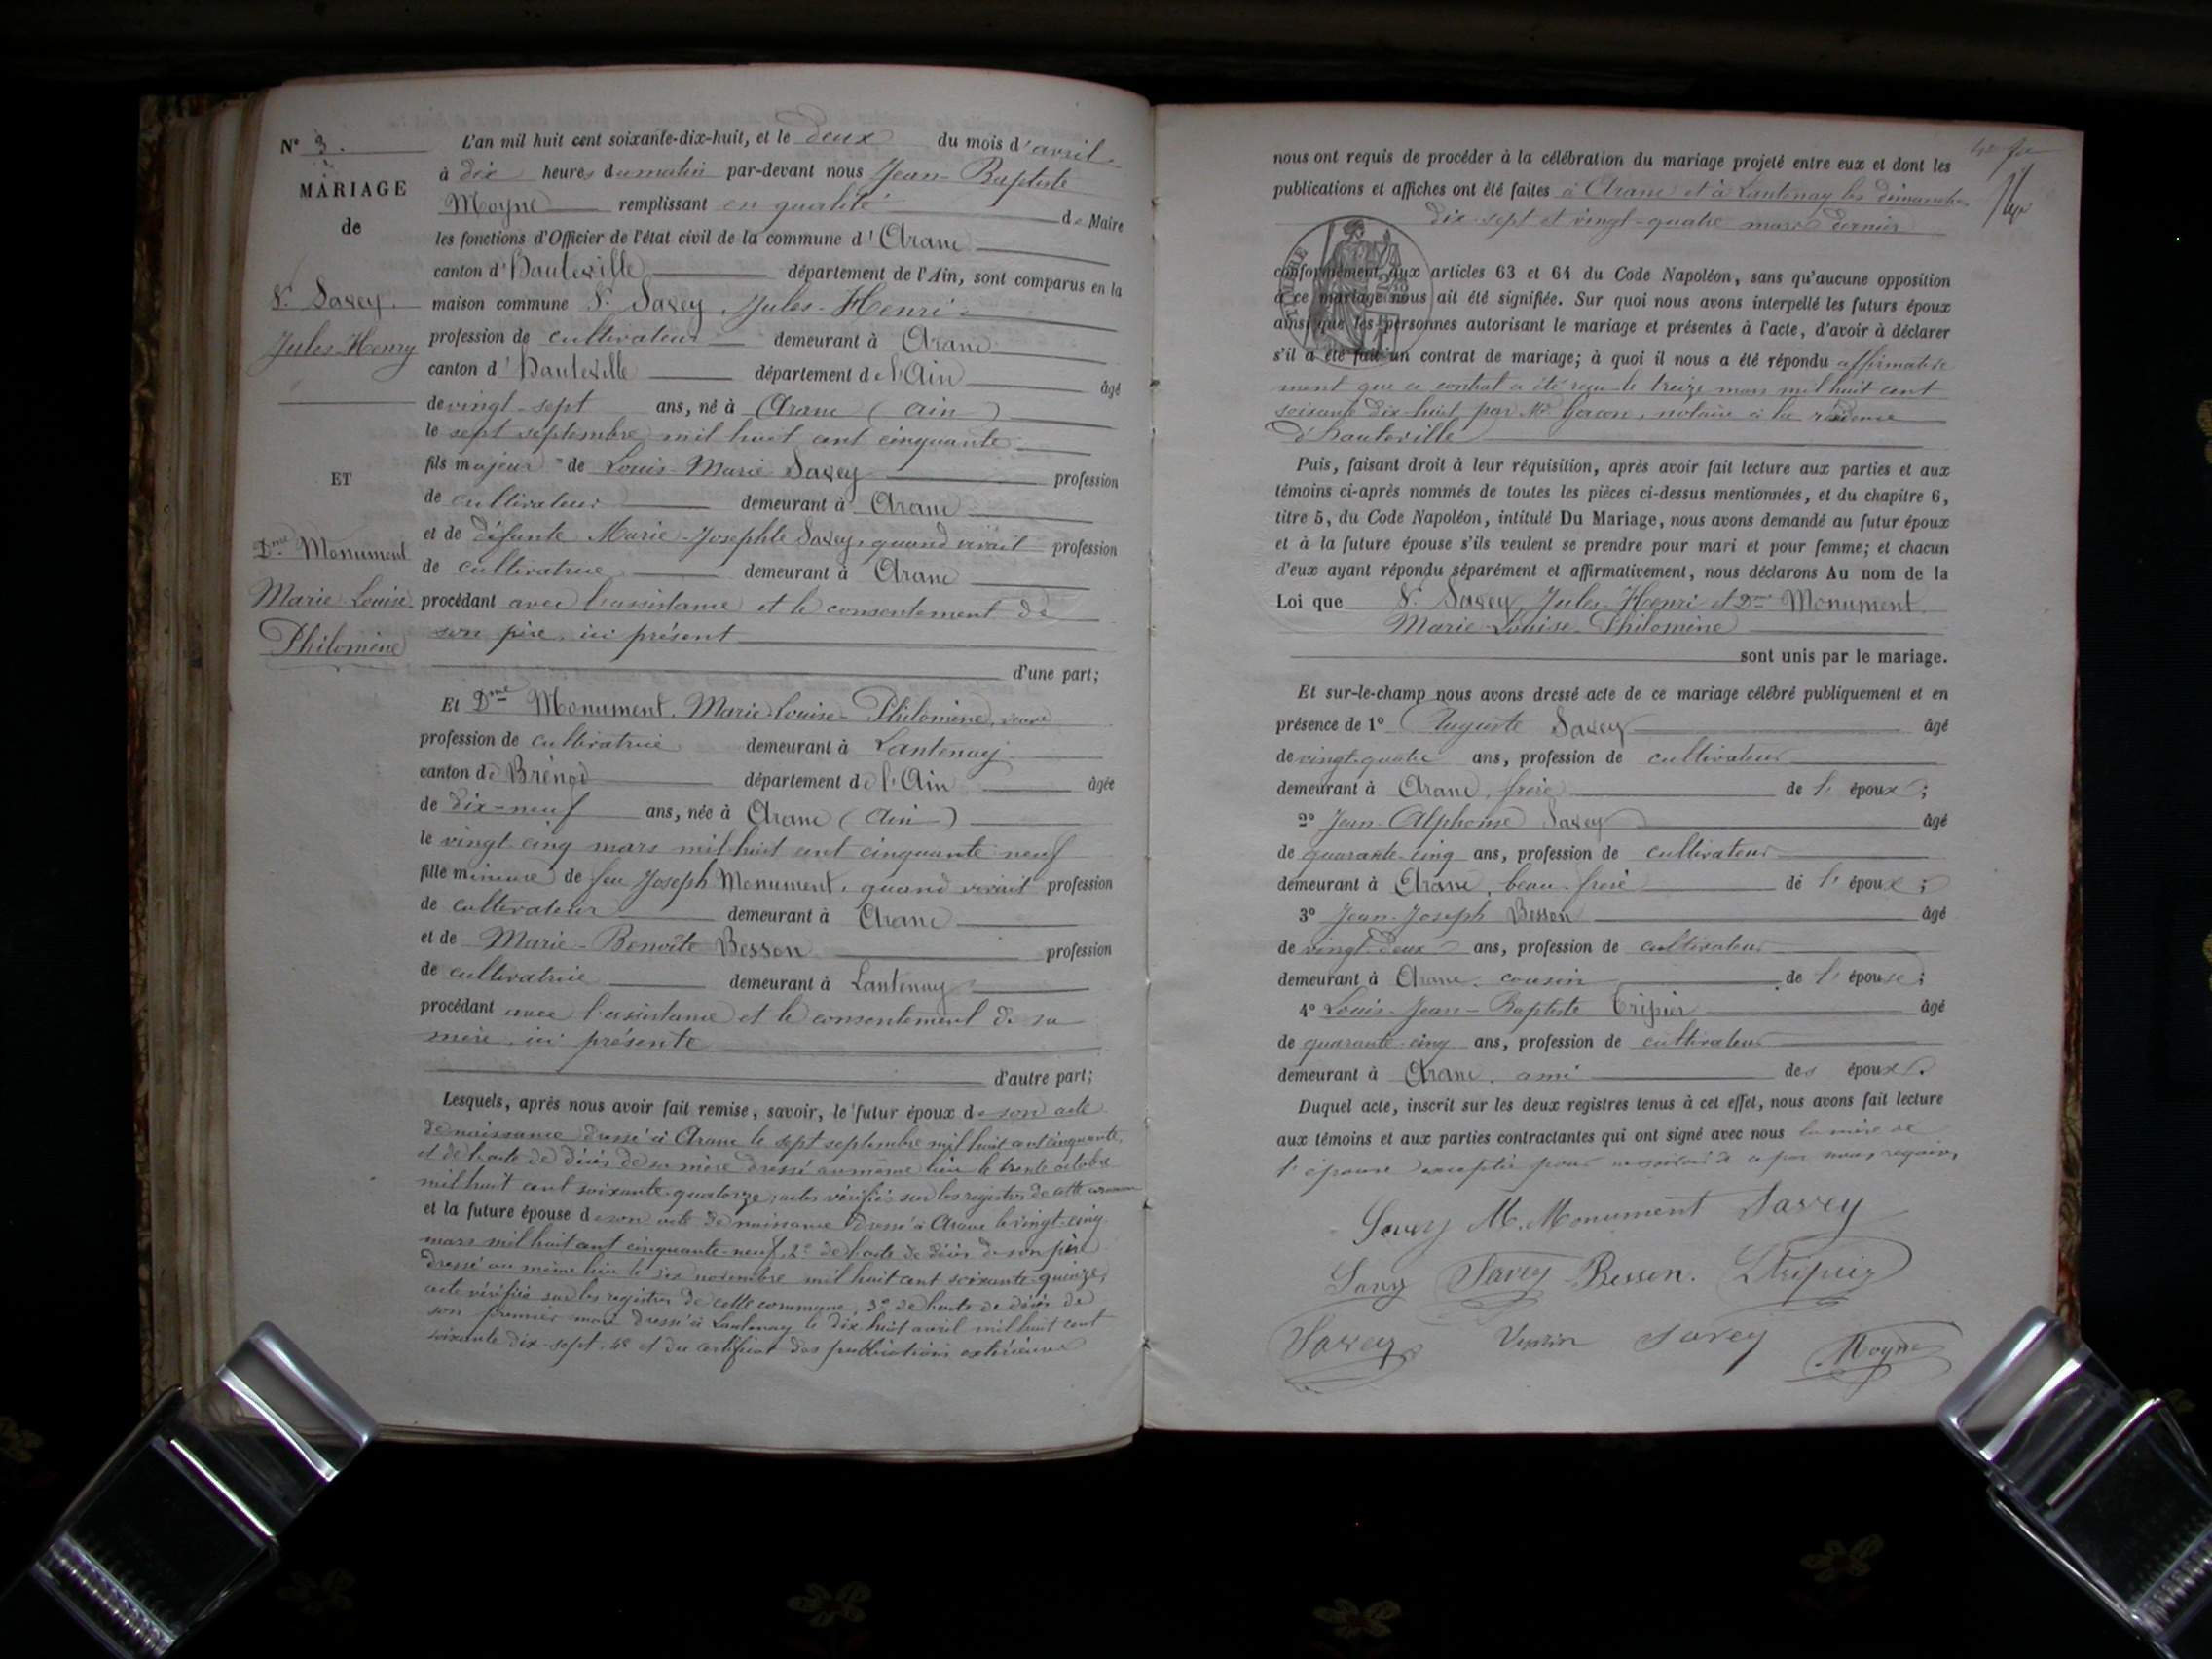 N° 3.
MARIAGE
de
S. Savey
Jules-Henry
ET
Dme Monument
Marie Louise
Philomène
L'an mil huit cent soixante-dix-huit, et le deux du mois d'avril
à dix heures du matin par-devant nous Jean-Baptiste
Moyne remplissant en qualité de Maire
les fonctions d'Officier de l'état civil de la commune d'Aranc
canton d'Hauteville département de l'Ain, sont comparus en la
maison commune S. Savey, Jules-Henri
profession de cultivateur demeurant à Aranc
canton d'Hauteville département de l'Ain âgé
de vingt-sept ans, né à Aranc (Ain)
le sept septembre mil huit cent cinquante
fils majeur de Louis-Marie Savey profession
de cultivateur demeurant à Aranc
et de défunte Marie-Josephte Savey, quand vivait profession
de cultivatrice demeurant à Aranc
procédant avec l'assistance et le consentement de
son père, ici présent
d'une part;
Et Dme Monument, Marie-Louise-Philomène, veuve
profession de cultivatrice demeurant à Lantenay
canton de Brénod département de l'Ain âgée
de dix-neuf ans, née à Aranc (Ain)
le vingt-cinq mars mil huit cent cinquante-neuf
fille mineure de feu Joseph Monument, quand vivait profession
de cultivateur demeurant à Aranc
et de Marie-Benoîte Besson profession
de cultivatrice demeurant à Lantenay
procédant avec l'assistance et le consentement de sa
mère, ici présente
d'autre part;
Lesquels, après nous avoir fait remise, savoir, le futur époux de son acte
de naissance dressé à Aranc le sept septembre mil huit cent cinquante,
et de l'acte de décès de sa mère dressé au même lieu le trente octobre
mil huit cent soixante-quatorze, actes vérifiés sur les registres de cette commune
et la future épouse de son acte de naissance dressé à Aranc le vingt-cinq
mars mil huit cent cinquante-neuf, 2° de l'acte de décès de son père
dressé au même lieu le six novembre mil huit cent soixante-quinze,
acte vérifié sur les registres de cette commune, 3° de l'acte de décès de
son premier mari dressé à Lantenay le dix-huit avril mil huit cent
soixante-dix-sept, 4° et du certificat des publications extérieures
nous ont requis de procéder à la célébration du mariage projeté entre eux et dont les
publications et affiches ont été faites à Aranc et à Lantenay les dimanches
dix-sept et vingt-quatre mars dernier
TIMBRE
conformément aux articles 63 et 64 du Code Napoléon, sans qu'aucune opposition
à ce mariage nous ait été signifiée. Sur quoi nous avons interpellé les futurs époux
ainsi que les personnes autorisant le mariage et présentes à l'acte, d'avoir à déclarer
s'il a été fait un contrat de mariage; à quoi il nous a été répondu affirmative
ment que ce contrat a été reçu le treize mars mil huit cent
soixante-dix-huit par Me notaire à la résidence
d'hauteville
Puis, faisant droit à leur réquisition, après avoir fait lecture aux parties et aux
témoins ci-après nommés de toutes les pièces ci-dessus mentionnées, et du chapitre 6,
titre 5, du Code Napoléon, intitulé Du Mariage, nous avons demandé au futur époux
et à la future épouse s'ils veulent se prendre pour mari et pour femme; et chacun
d'eux ayant répondu séparément et affirmativement, nous déclarons Au nom de la
Loi que S. Savey, Jules-Henri et Dme Monument
Marie-Louise-Philomène
sont unis par le mariage.
Et sur-le-champ nous avons dressé acte de ce mariage célébré publiquement et en
présence de 1° Auguste Savey âgé
de vingt-quatre ans, profession de cultivateur
demeurant à Aranc, frère de l'époux;
2° Jean-Alphonse Savey âgé
de quarante-cinq ans, profession de cultivateur
demeurant à Aranc, beau-frère de l'époux;
3° Jean-Joseph Besson âgé
de vingt-deux ans, profession de cultivateur
demeurant à Aranc, cousin de l'épouse;
4° Louis-Jean-Baptiste Tripier âgé
de quarante-cinq ans, profession de cultivateur
demeurant à Aranc, ami des époux.
Duquel acte, inscrit sur les deux registres tenus à cet effet, nous avons fait lecture
aux témoins et aux parties contractantes qui ont signé avec nous la mère de
l'épouse exceptée pour ce par nous requise
Savey M. Monument Savey
Savey Savey Besson. Tripier
Savey Savey Moyne